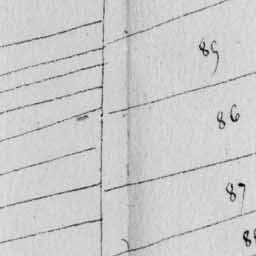 85
86
87
88